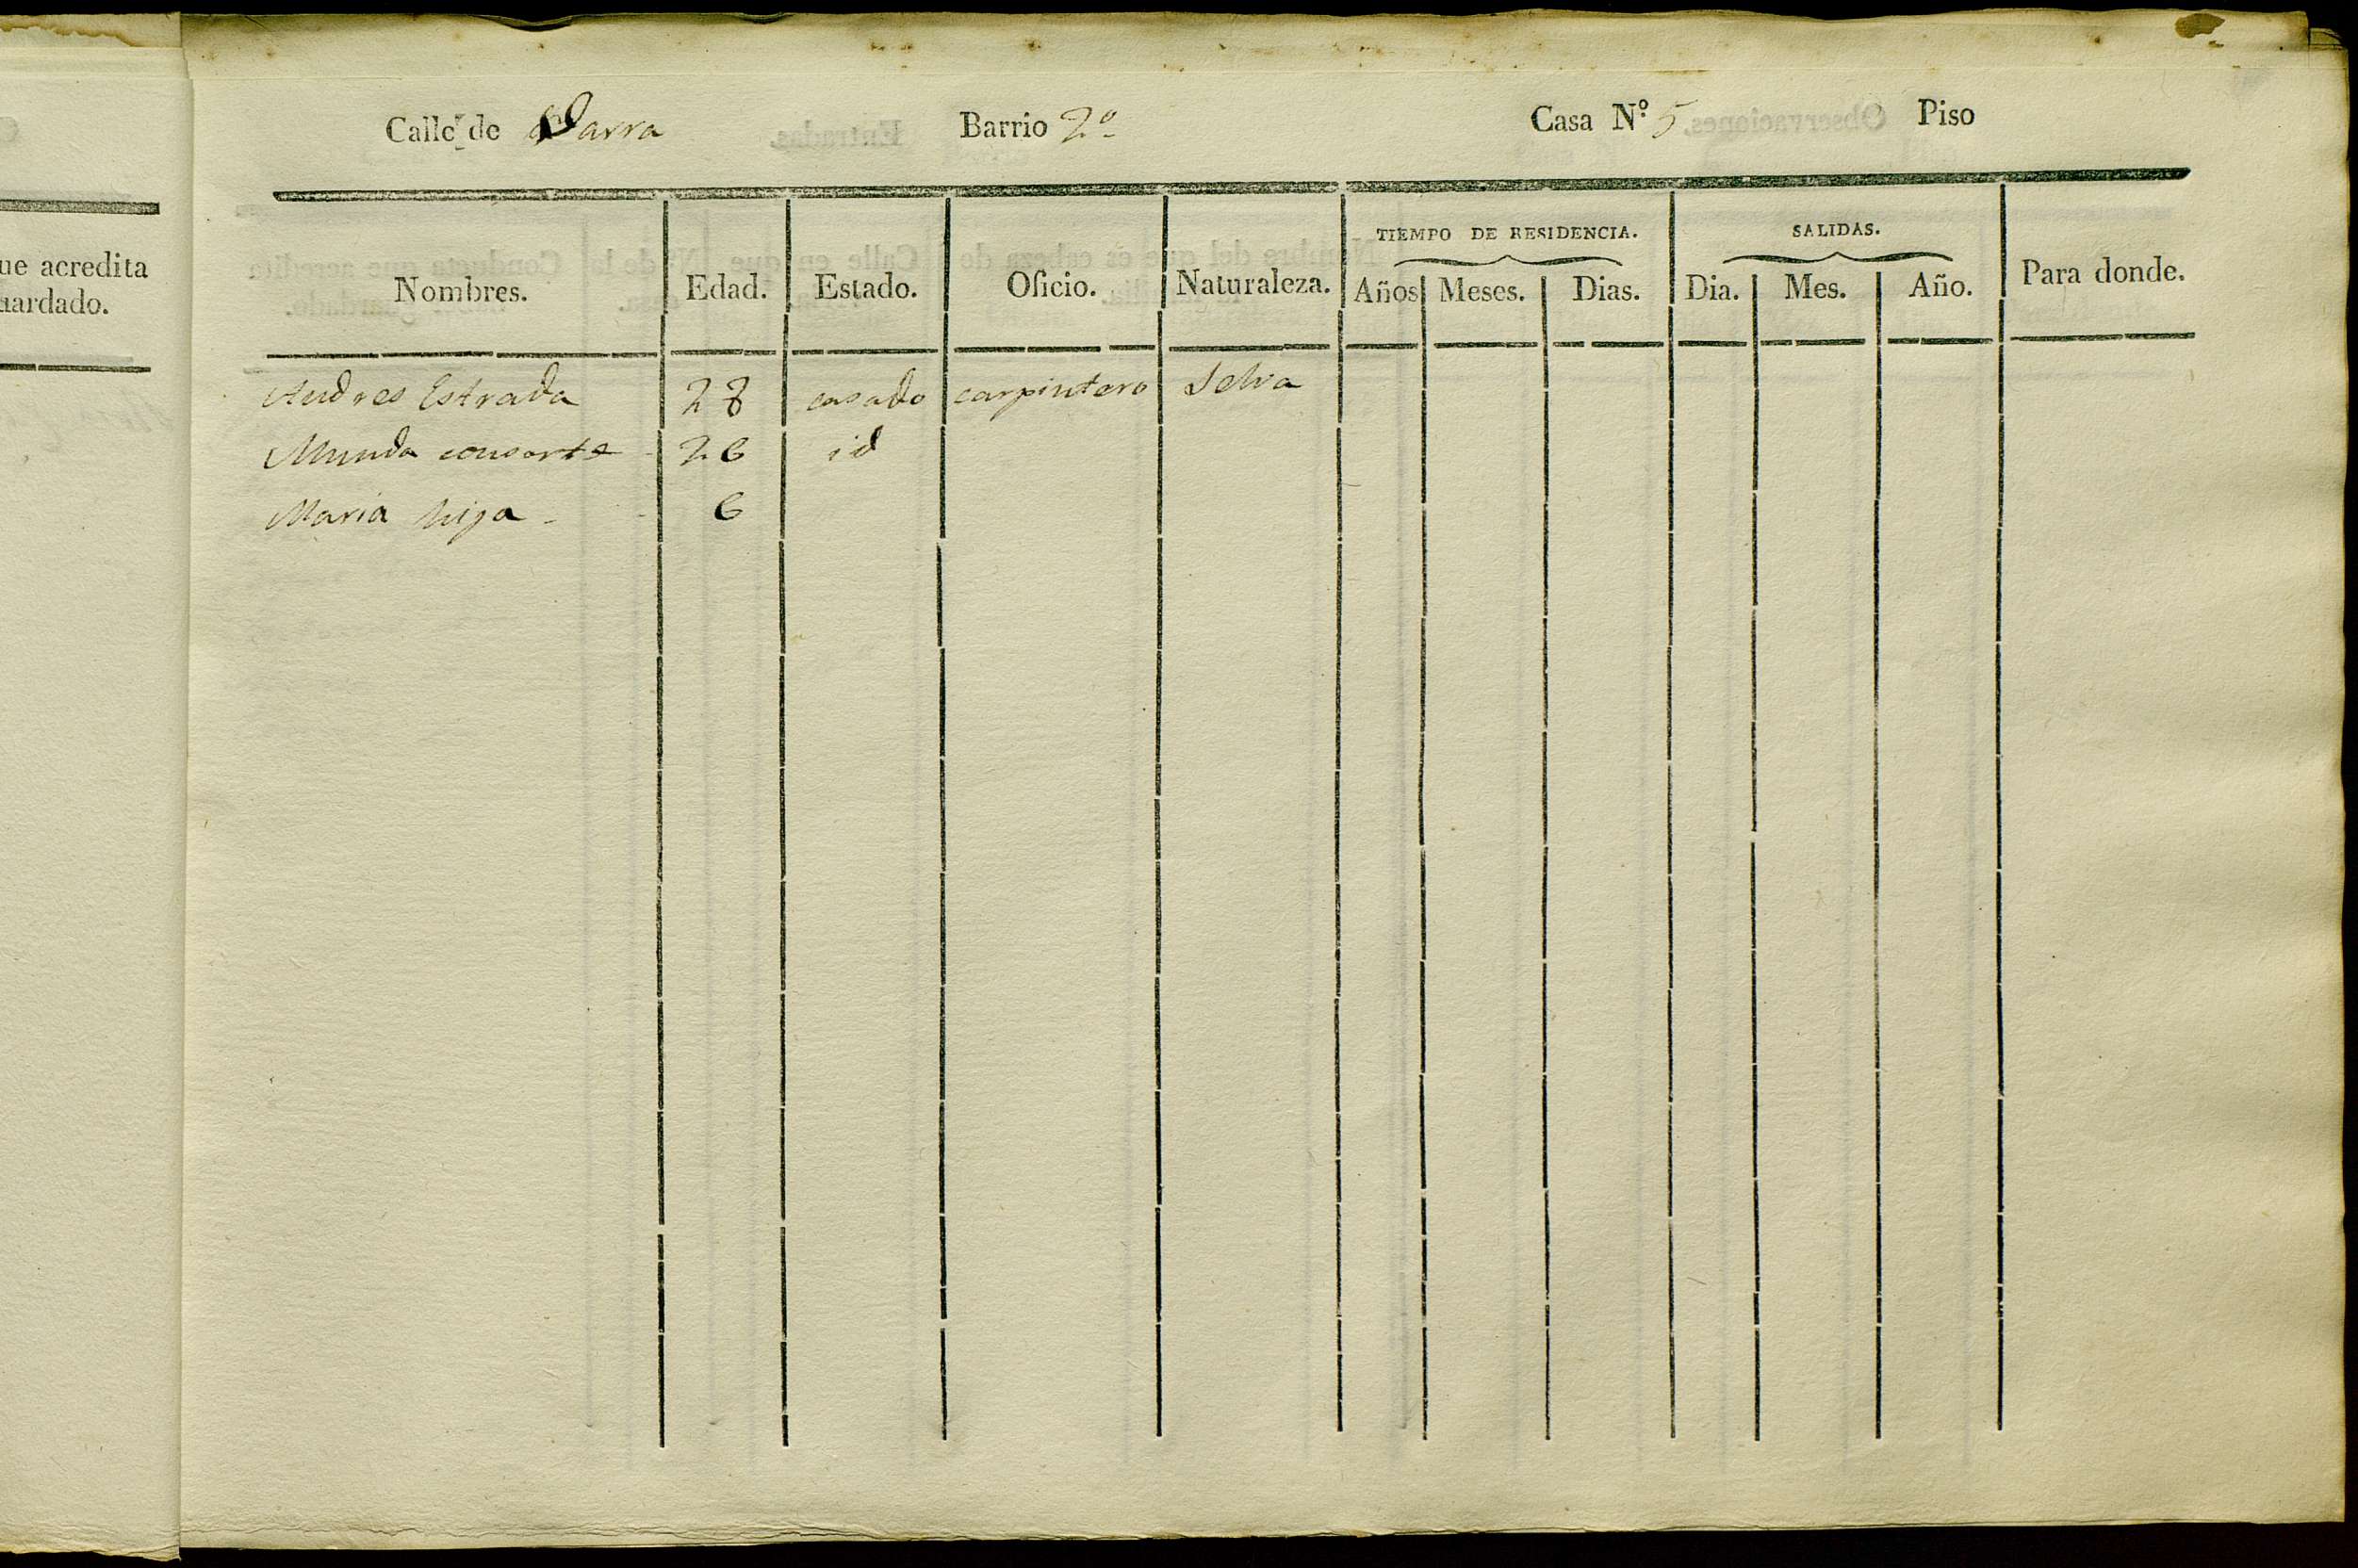 Calle de Parra Barrio 2º Casa Nº 5 Piso
ue acredita
uardado.
TIEMPO DE RESIDENCIA. SALIDAS.
Nombres. Edad. Estado. Oficio. Naturaleza. Años Meses. Dias. Dia. Mes. Año. Para donde.
Andres Estrada 28 casado carpintero Selva
Munda consorte 26 id
Maria hija 6